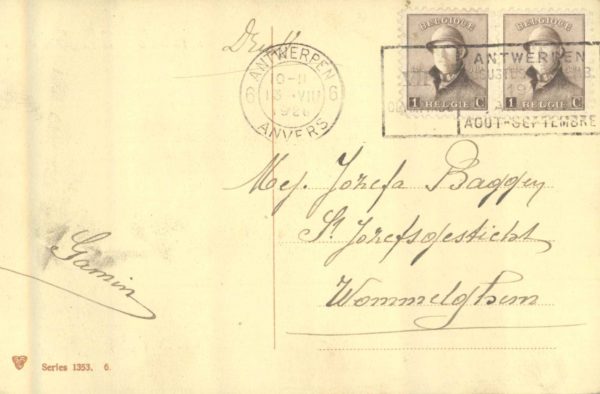 BELGIQUE
BELGIQUE
1 BELGIE C
1 BELGIE C
ANTWERPEN
6 6
10-11
13 VIII
ANVERS
ANTWERPEN
AOUT-SEPTEMBRE
Mej. Jozefa Baggen
St Jozefsgesticht
Wommelghem
Gamin
Series 1353. 6.